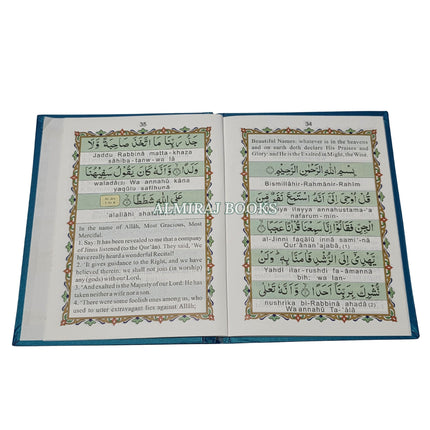 34
Beautiful Names; whatever is in the heavens
and on earth doth declare His Praises and
Glory: and He is the Exalted in Might, the Wise.
بِسْمِ اللّٰهِ الرَّحْمٰنِ الرَّحِيْمِ
Bismillâhir-Rahmânir-Rahîm
قُلْ اُوْحِىَ اِلَىَّ اَنَّهُ اسْتَمَعَ نَفَرٌ مِّنَ
ilayya annahustama-'a
nafarum-min-
الْجِنِّ فَقَالُوْٓا اِنَّا سَمِعْنَا قُرْاٰنًا عَجَبًا
al-Jinni faqâlû innâ sami'-nâ
Qur'ânan'ajabâ, (1)
يَّهْدِىْٓ اِلَى الرُّشْدِ فَاٰمَنَّا بِهٖ ؕ وَلَنْ
Yahdî ilar-rushdi fa-âmannâ
bih; wa lan
نُّشْرِكَ بِرَبِّنَآ اَحَدًا وَّاَنَّهٗ تَعٰلٰى
nushrika bi-Rabbinâ ahadâ (2)
Wa annahû Ta-'âlâ
35
جَدُّ رَبِّنَا مَا اتَّخَذَ صَاحِبَةً وَّلَا
Jaddu Rabbinâ matta-khaza
sâhiba-tanw-wa lâ
وَلَدًا وَّاَنَّهٗ كَانَ يَقُوْلُ سَفِيْهُنَا
waladâ (3) Wa annahû kâna
yaqûlu safîhunâ
عَلَى اللّٰهِ شَطَطًا
'alallâhi
In the name of Allâh, Most Gracious, Most
Merciful.
1. Say: It has been revealed to me that a company
of Jinns listened (to the Qur'ân). They said, 'We
have really heard a wonderful Recital!
2. 'It gives guidance to the Right, and we have
believed therein: we shall not join (in worship)
any (gods) with our Lord.
3. 'And exalted is the Majesty of our Lord: He has
taken neither a wife nor a son.
4. 'There were some foolish ones among us, who
used to utter extravagant lies against Allâh;
ALMIRAJ BOOKS